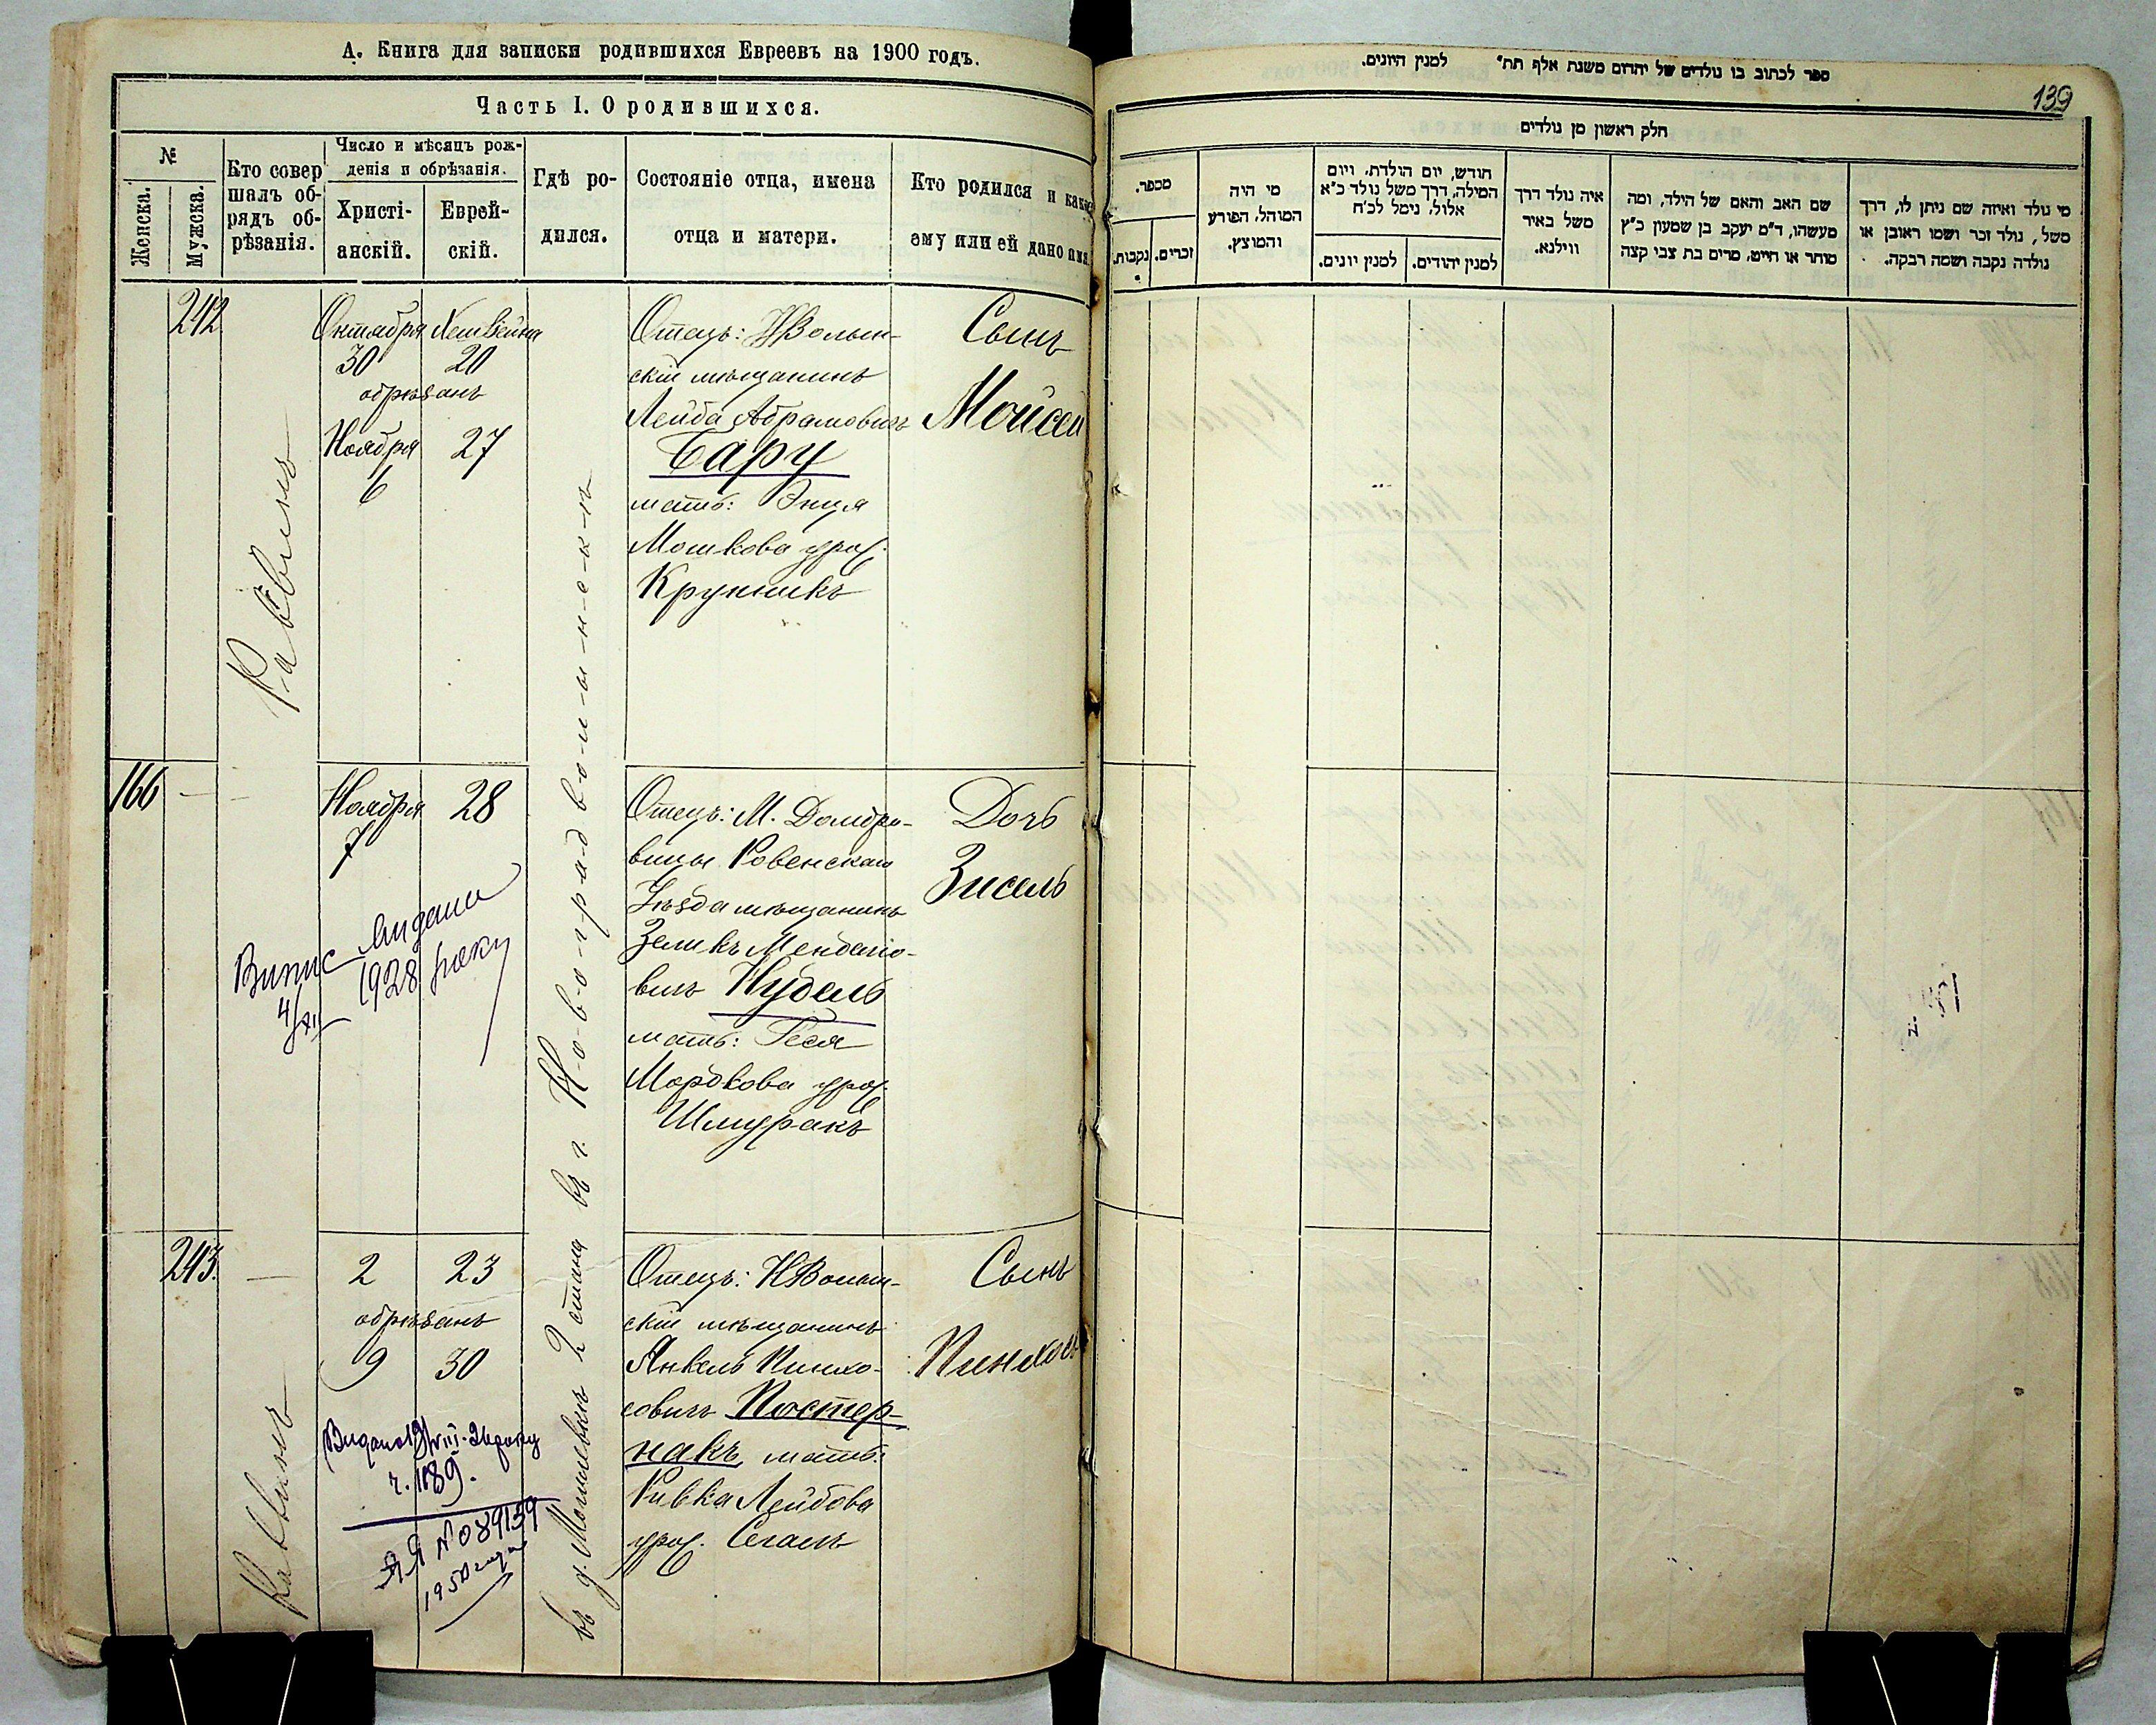 А. Книга для записки родившихся Евреевъ на 1900 годъ.
Часть I. О родившихся.
№
Женска.
Мужска.
Кто совер
шалъ об-
рядъ об-
рѣзанія.
Число и мѣсяцъ рож-
денія и обрѣзанія.
Христі-
анскій.
Еврей-
скій.
Гдѣ ро-
дился.
Состояніе отца, имена
отца и матери.
Кто родился и какое
ему или ей дано имя.
242
Раввинъ
Октября Хешвейна
30 20
обрѣзанъ
Ноября 27
6
въ г. Н-о-в-о-г-р-а-д-в-о-л-ы-н-с-к-ѣ
Отецъ: НВолын-
скій мѣщанинъ
Лейба Абрамовичъ
Бару
мать: Энця
Мошкова урож.
Крупникъ
Сынъ
Мойсей
166 — —
Ноября 28
7
Випис видана
4/XII 1928 року
Отецъ: М. Домбро-
вицы Ровенскаго
Уѣзда мѣщанинъ
Зеликъ Менделіо-
вичъ Нудель
мать: Геся
Мордкова урож.
Шмуракъ
Дочь
Зисель
243. —
Раввинъ
2 23
обрѣзанъ
9 30
Видано 19/VIII-26 року
ч. 1189.
ЯЯ № 089159
1950 года
въ д. Могилевкѣ 2 стана
Отецъ: НВолын-
скій мѣщанинъ
Янкель Пинхо-
совичъ Постер-
накъ, мать:
Ривка Лейбова
урож. Сегалъ
Сынъ
Пинхосъ
ספר לכתוב בו נולדים של יהדום משנת אלף תת״ למנין היונים.
139
חלק ראשון מן נולדים
מספר.
נקבות.
זכרים.
מי היה
המוהל, הפורע
והמוצץ.
חודש, יום הולדת, ויום
המילה, דרך משל נולד כ״א
אלול, נימל לכ״ח
למנין יונים.
למנין יהודים.
איה נולד דרך
משל באיר
ווילנא.
שם האב והאם של הילד, ומה
מעשהו, ד״מ יעקב בן שמעון כ״ץ
סוחר או חייט, מרים בת צבי קצה
מי נולד ואיזה שם ניתן לו, דרך
משל, נולד זכר ושמו ראובן או
נולדה נקבה ושמה רבקה.